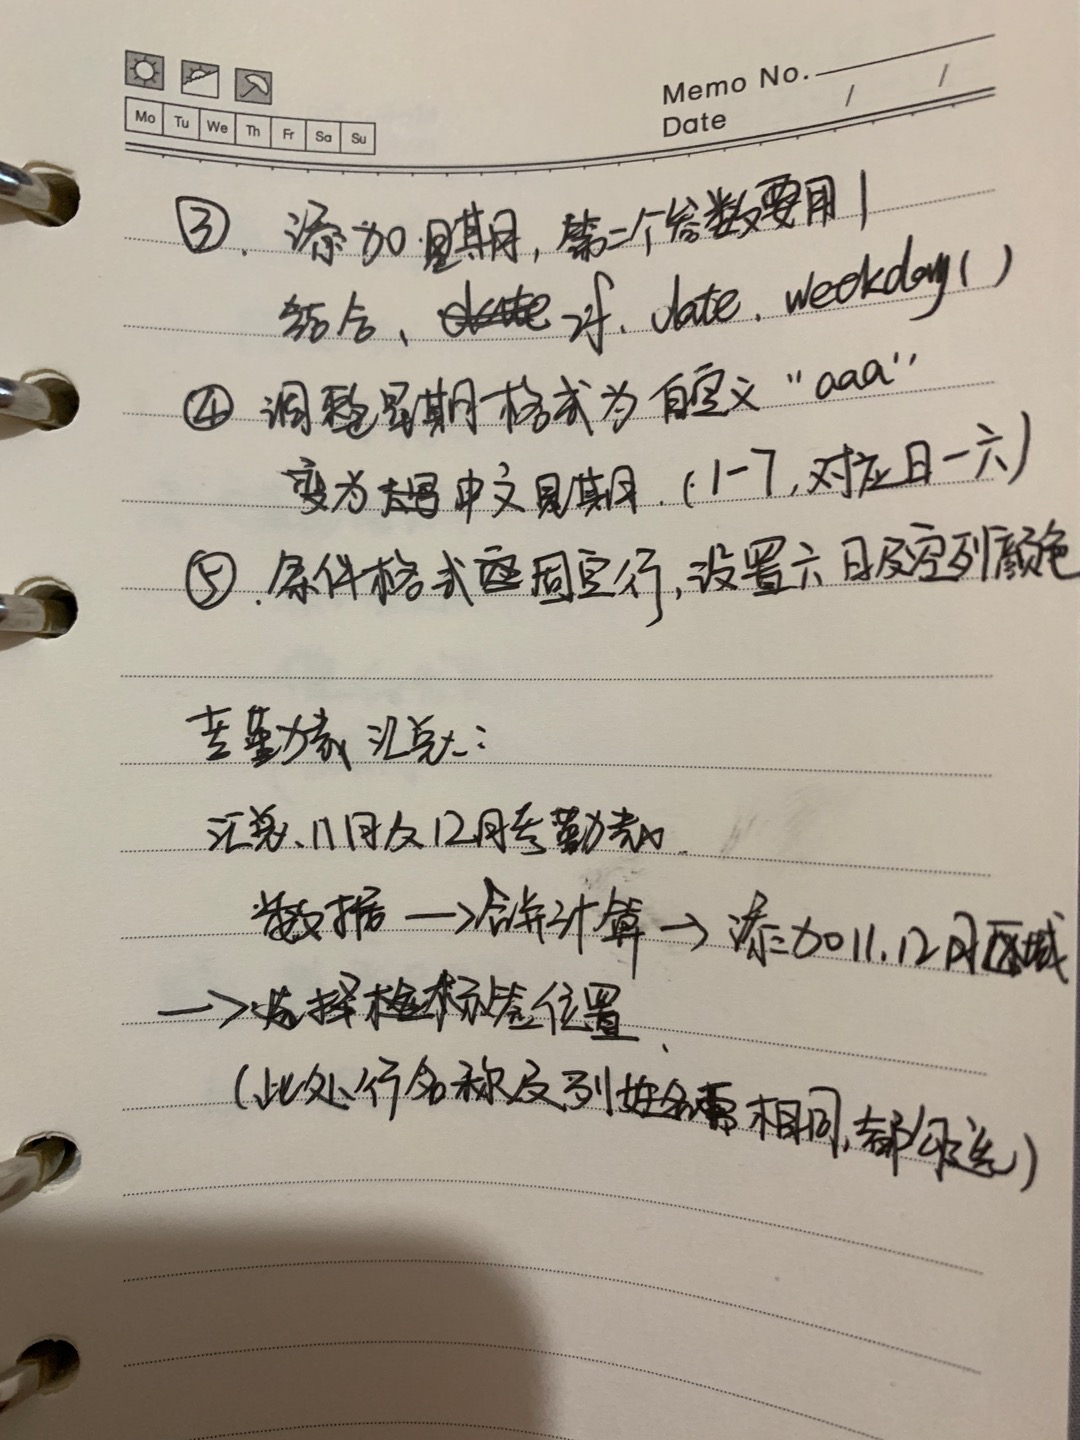 Memo No.
Mo Tu We Th Fr Sa Su
Date / /
③. 添加星期,第二个参数要用1
结合、if、date、weekday()
④ 调整星期格式为自定义"aaa"
变为大写中文星期.(1-7,对应日一六)
⑤.条件格式固定行,设置六日及空列颜色
考勤表汇总:
汇总、11月及12月考勤表.
数据→合并计算→添加11.12月区域
→选择标签位置、
(此处行名称及列姓名需相同,都勾选)